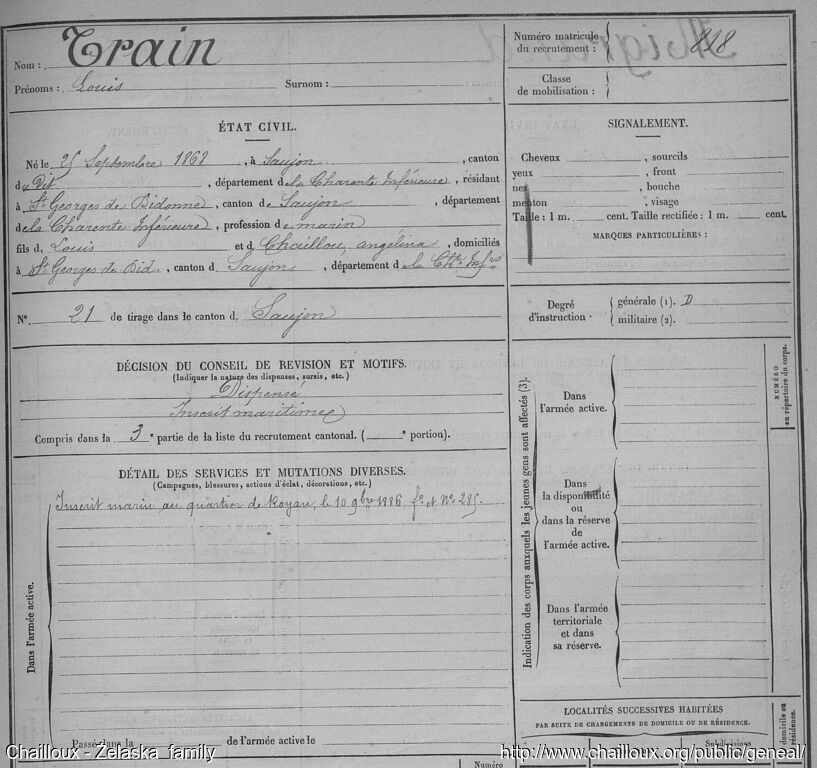 Nom : Train
Prénoms : Louis Surnom :
Numéro matricule
du recrutement : 828
Classe
de mobilisation :
ÉTAT CIVIL.
Né le 25 Septembre 1868, à Saujon, canton
du Dit, département de la Charente Inférieure, résidant
à St Georges de Didonne, canton de Saujon, département
de la Charente Inférieure, profession de marin
fils d Louis et d Chaillou, angélina, domiciliés
à St Georges de Did., canton d Saujon, département d la Chte Infre
SIGNALEMENT.
Cheveux , sourcils
yeux , front
nez , bouche
menton , visage
Taille : 1 m. cent. Taille rectifiée : 1 m. cent.
MARQUES PARTICULIÈRES :
No. 21 de tirage dans le canton d Saujon
Degré
d'instruction.
générale (1). D
militaire (2).
DÉCISION DU CONSEIL DE REVISION ET MOTIFS.
(Indiquer la nature des dispenses, sursis, etc.)
Dispensé
Inscrit maritime
Compris dans la 3e partie de la liste du recrutement cantonal. ( e portion).
DÉTAIL DES SERVICES ET MUTATIONS DIVERSES.
(Campagnes, blessures, actions d'éclat, décorations, etc.)
Inscrit marin au quartier de Royan, le 10 9bre 1886, fo et No 285.
Dans l'armée active.
Passé dans la de l'armée active le
Indication des corps auxquels les jeunes gens sont affectés (3).
Dans
l'armée active.
Dans
la disponibilité
ou
dans la réserve
de
l'armée active.
Dans l'armée
territoriale
et dans
sa réserve.
NUMÉRO
au répertoire du corps.
LOCALITÉS SUCCESSIVES HABITÉES
PAR SUITE DE CHANGEMENTS DE DOMICILE OU DE RÉSIDENCE.
Subdivisions
domicile ou
résidence.
Numéro
Chailloux - Zelaska family
http://www.chailloux.org/public/geneal/